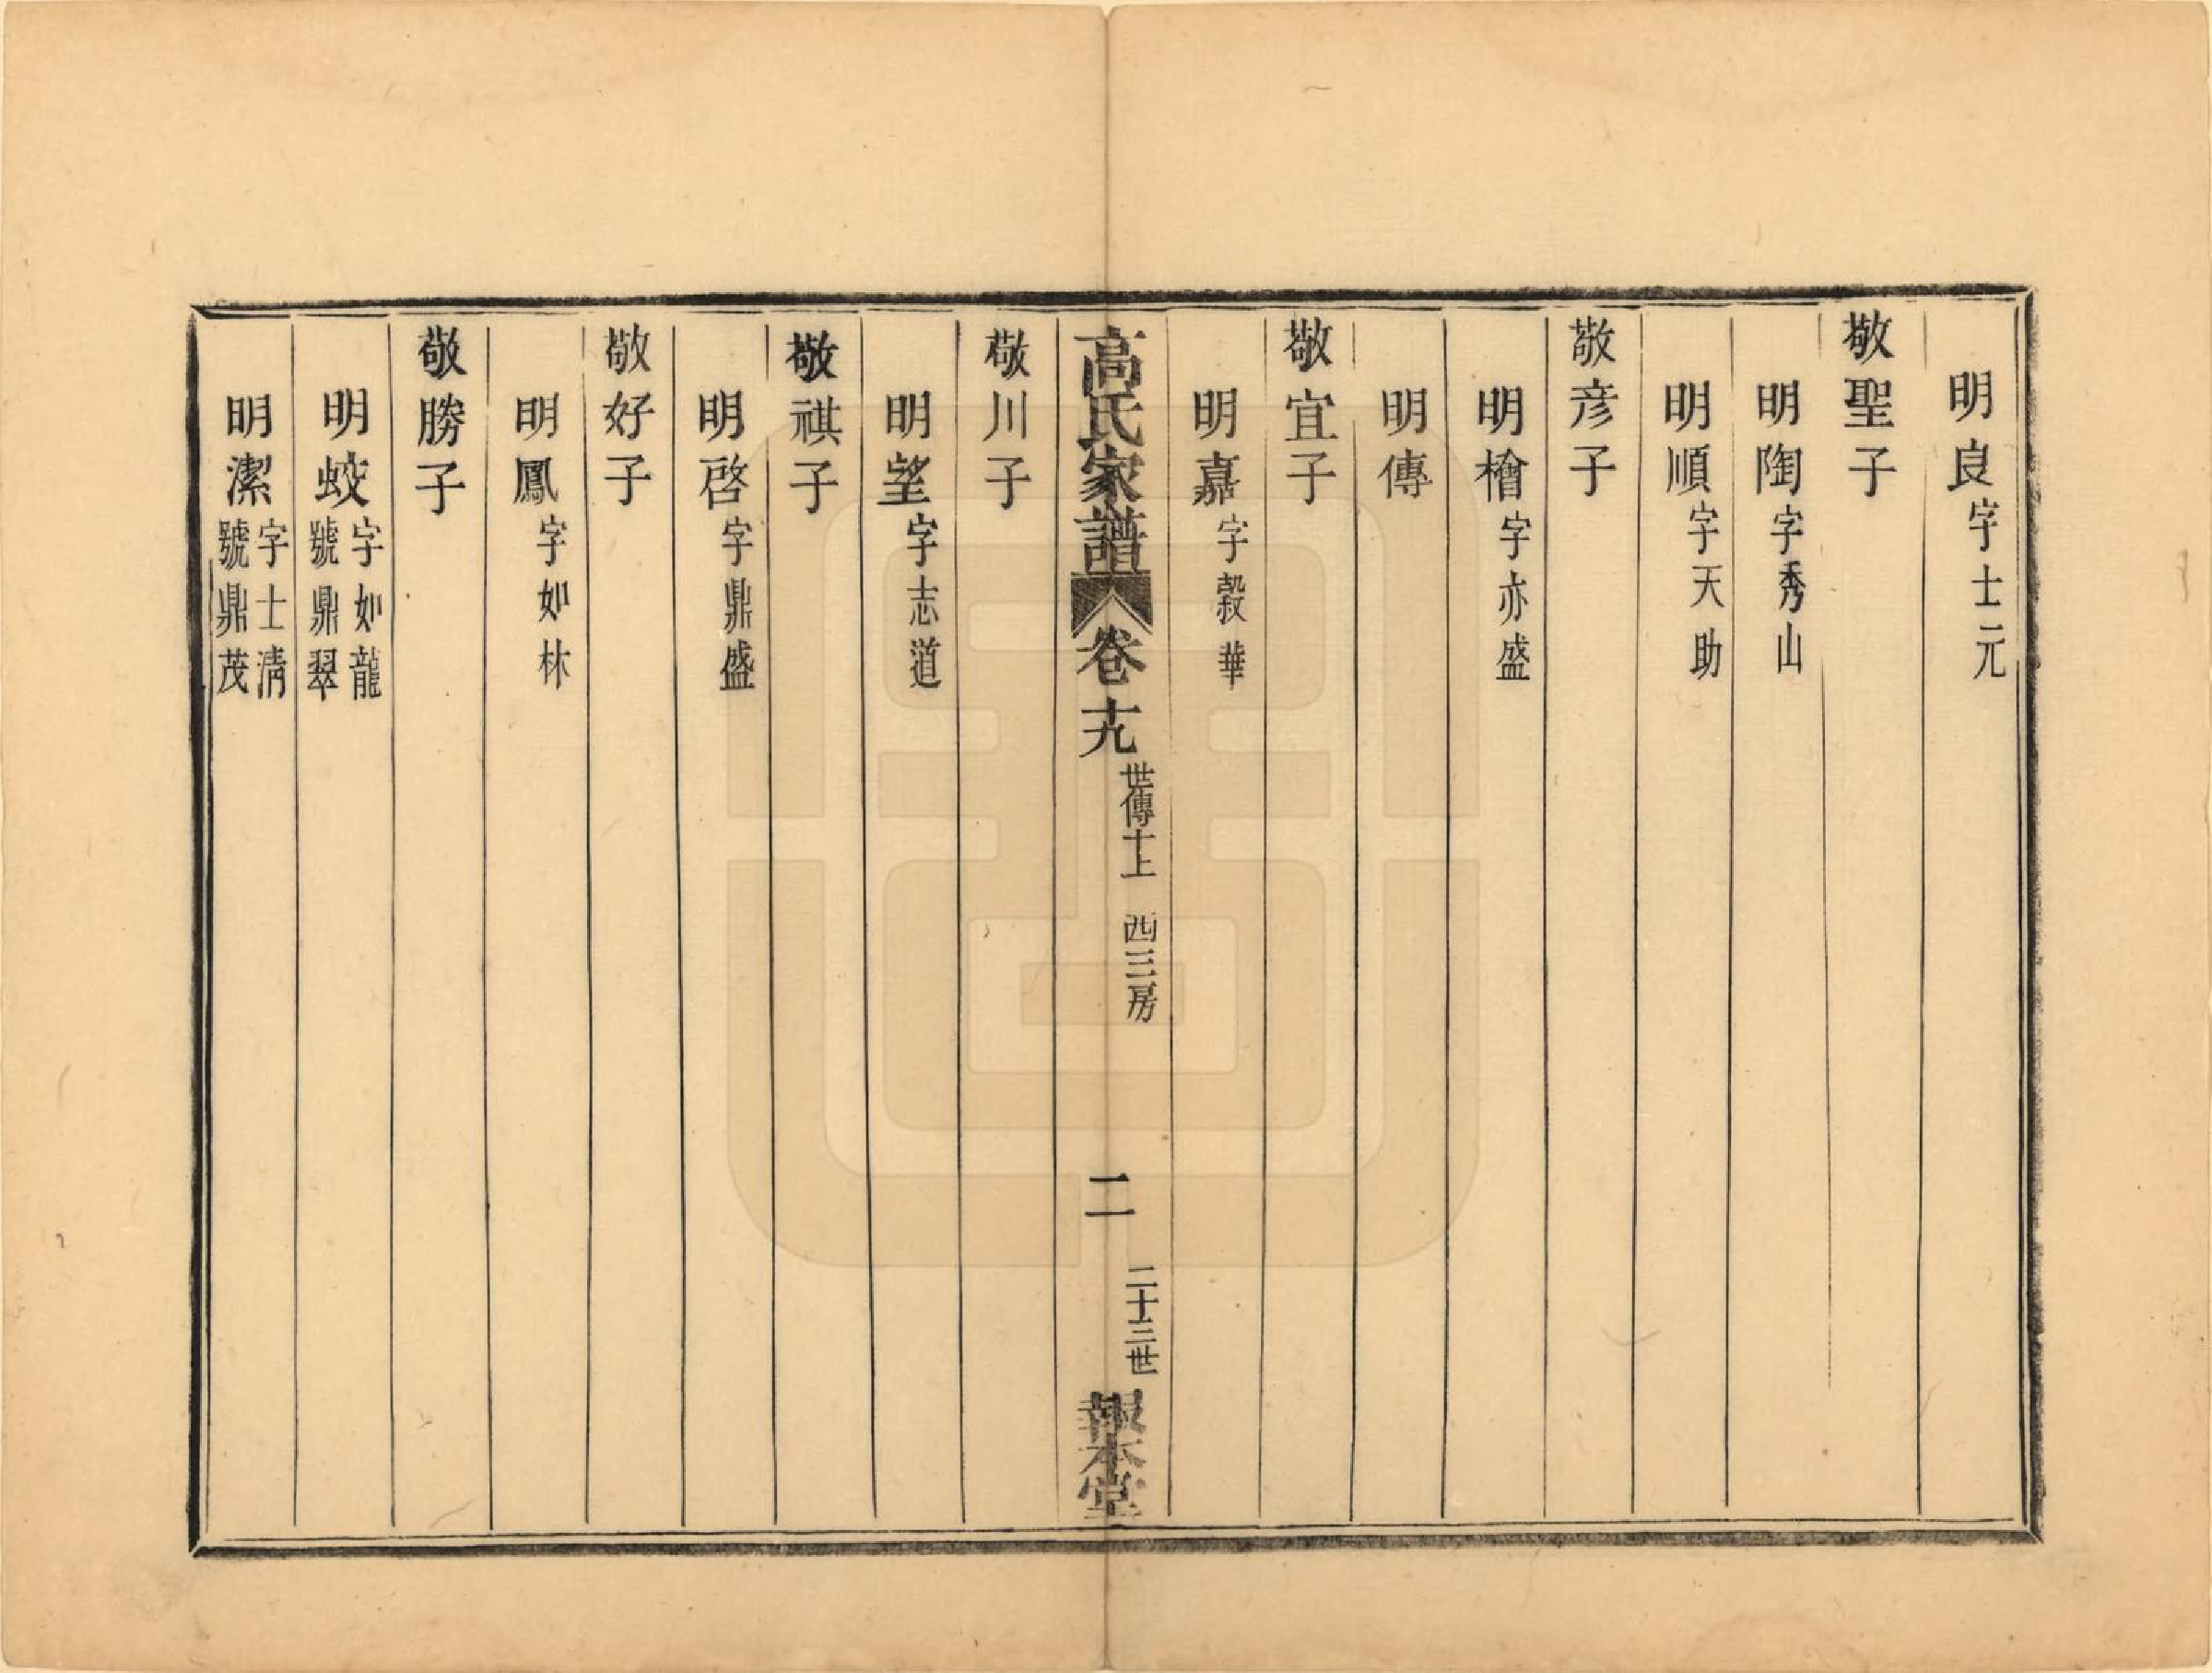 明良字士元
敬聖子
明陶字秀山
明順字天助
敬彦子
明檜字亦盛
明傳
敬宜子
明嘉字穀華
高氏家譜
卷十九
世傳十上 西三房
二
二十三世
報本堂
敬川子
明望字志道
敬祺子
明啓字鼎盛
敬好子
明鳳字如林
敬勝子
明蛟字如龍
號鼎翠
明潔字士清
號鼎茂